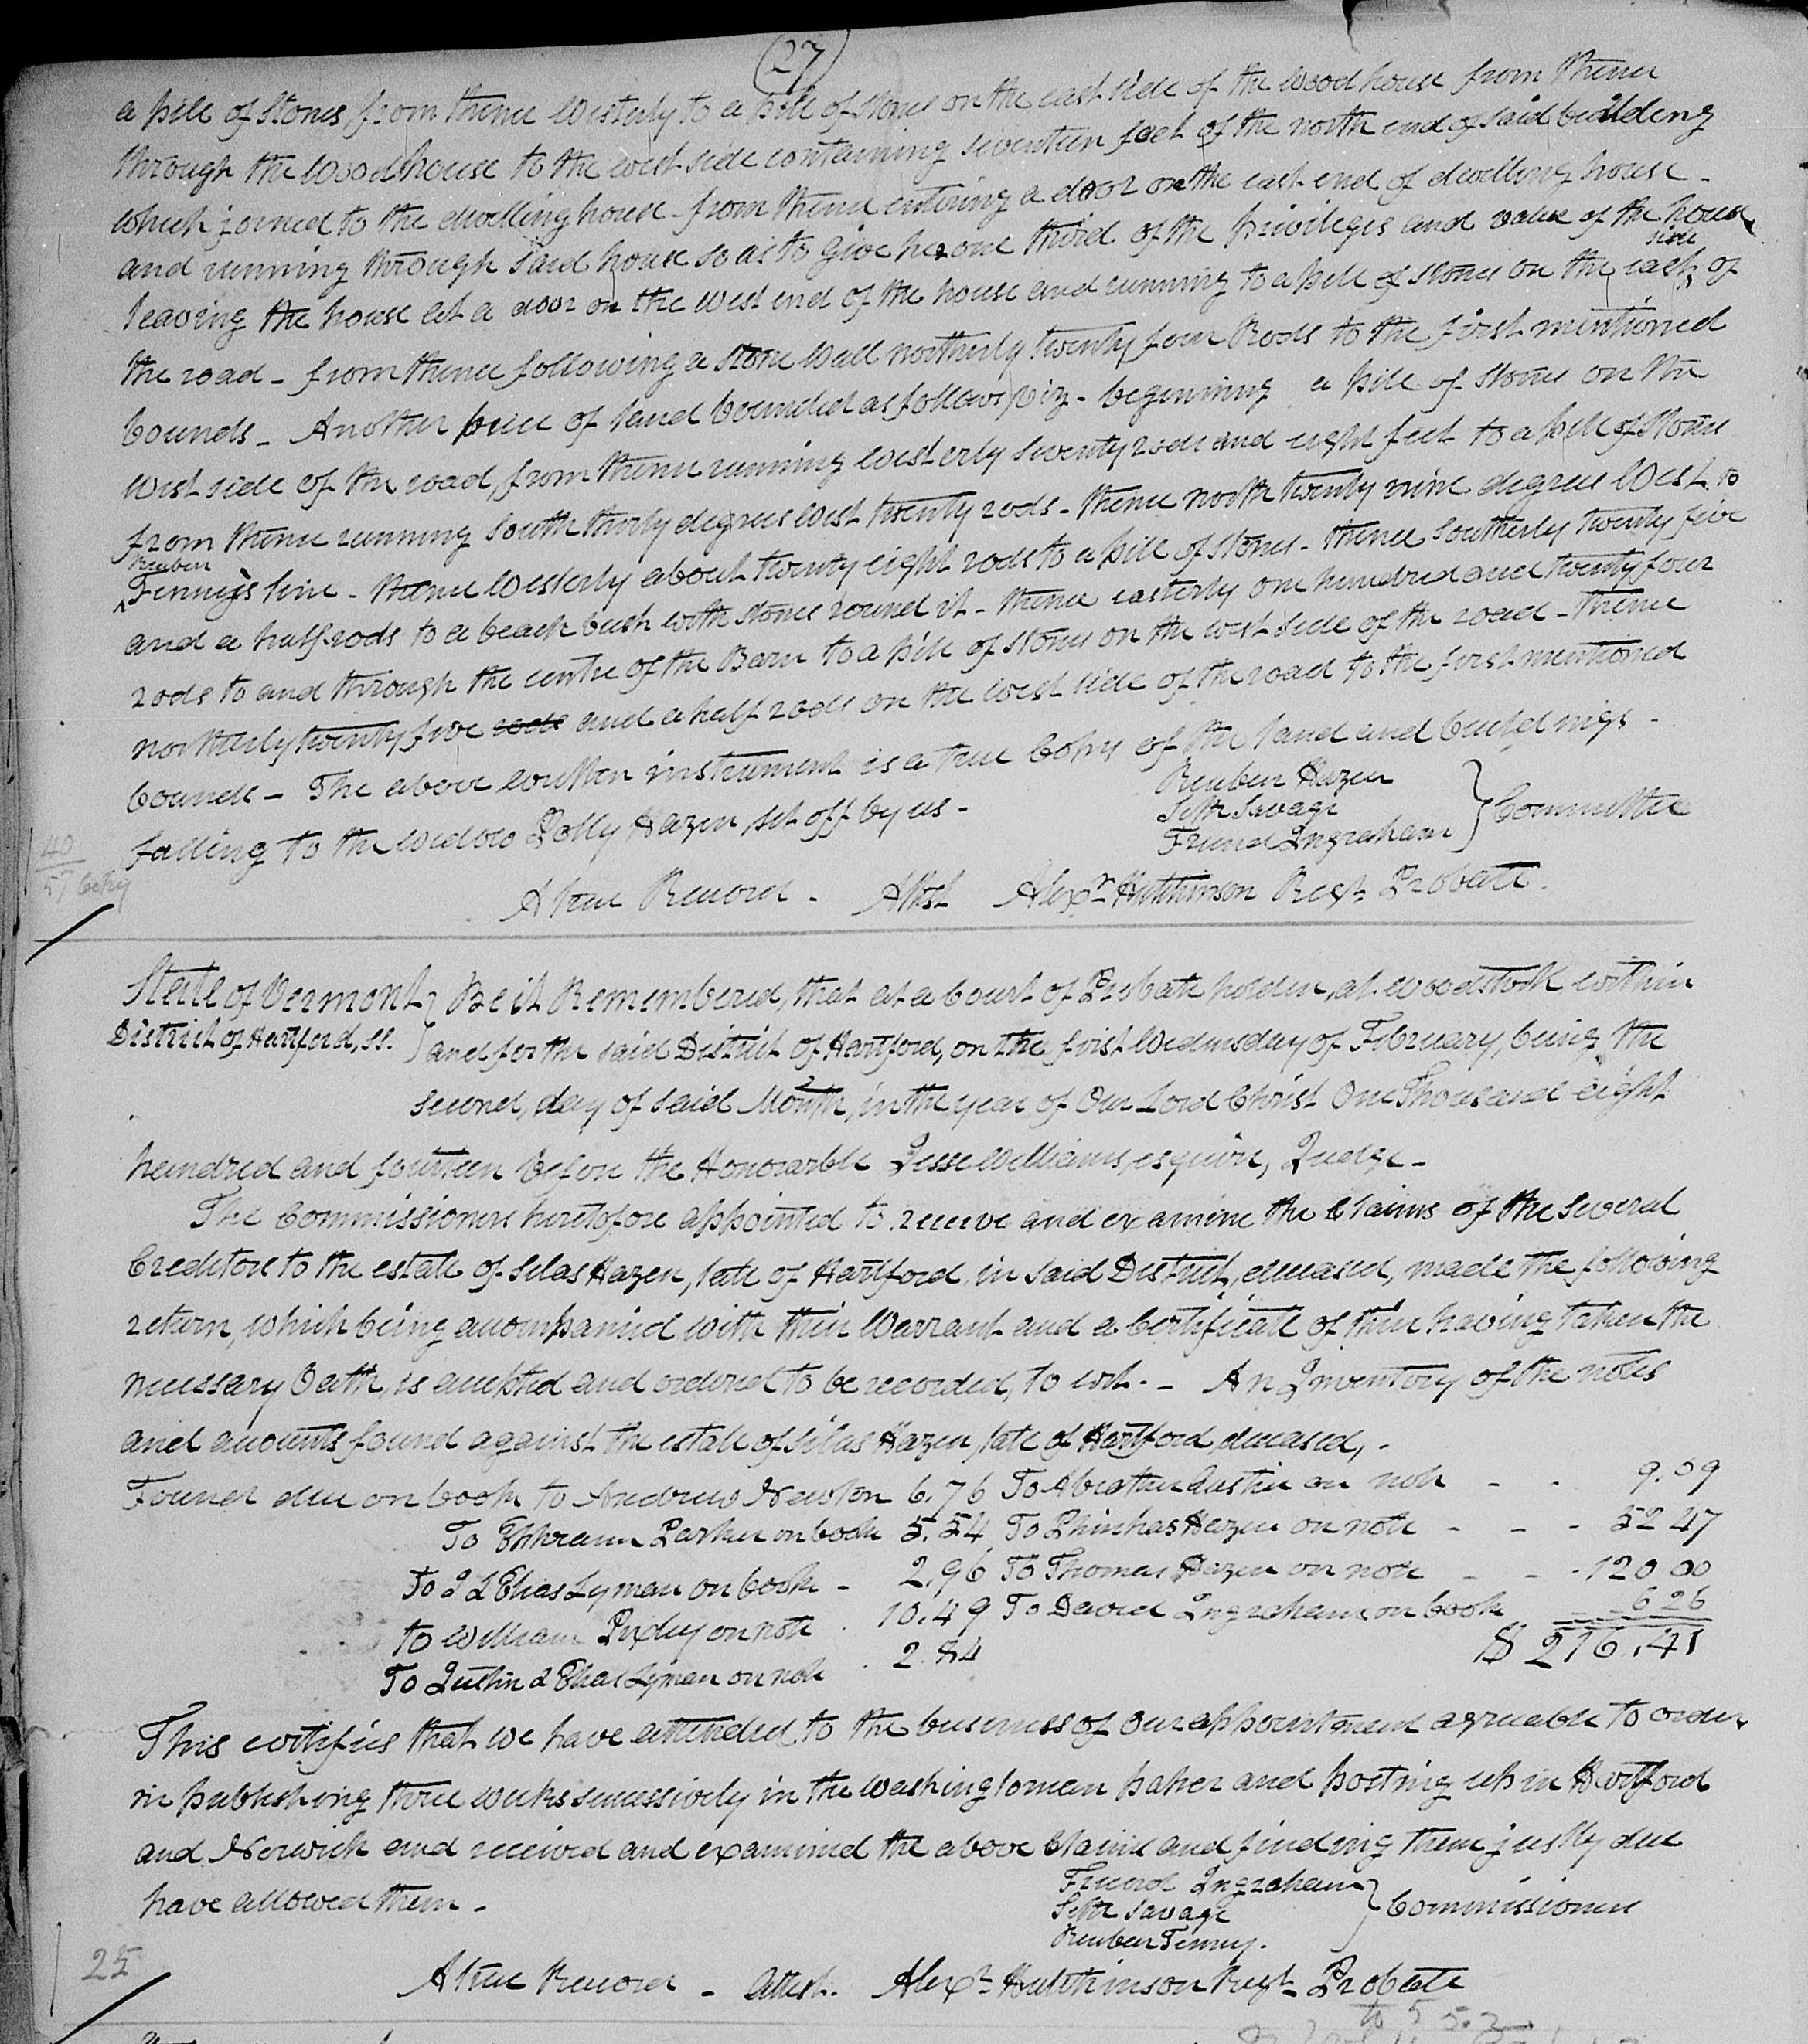 (27)
a pile of stones from thence Westerly to a pile of stones on the east side of the Wood house from thence
through the Woodhouse to the west side containing seventeen feet of the north end of said building
which joined to the dwelling house - from thence entering a door on the east end of dwelling house -
and running through said house so as to give her one third of the privileges and value of the house,
leaving the house at a door on the west end of the house and running to a pile of stones on the east side of
the road - from thence following a stone wall northerly twenty four Rods to the first mentioned
bounds - Another piece of land bounded as follows, viz - beginning a pile of stones on the
west side of the road, from thence running westerly seventy rods and eight feet to a pile of stones
from thence running South thirty degrees west twenty rods - thence north twenty nine degrees West to
Reuben Tenny's line - thence Westerly about twenty eight rods to a pile of stones - thence southerly twenty five
and a half rods to a beach bush with stones round it - thence easterly one hundred and twenty four
rods to and through the centre of the Barn to a pile of stones on the west side of the road - thence
northerly twenty five rods and a half rods on the west side of the road to the first mentioned
bounds - The above written instrument is a true Copy of the land and buildings -
falling to the widow Polly Hazen, set off by us -
Reuben Hazen
Seth Savage
Friend Ingraham } Committee
40
57 Copy
A true Record - Attest Alexr Hutchinson Regr Probate.
State of Vermont } Be it Remembered, that at a Court of Probate holden, at Woodstock within
District of Hartford, ss. } and for the said District of Hartford, on the first Wednesday of February, being the
second, day of said Month, in the year of Our Lord Christ One Thousand eight
hundred and fourteen before the Honorarble Jesse Williams, esquire, Judge -
The Commissioners heretofore appointed to receive and examine the Claims of the several
Creditors to the estate of Silas Hazen, late of Hartford, in said District, deceased, made the following
return, which being accompanied with their Warrant and a Certificate of their having taken the
necessary Oath, is accepted and ordered to be recorded, to wit. - An Inventory of the notes
and accounts found against the estate of Silas Hazen, late of Hartford, deceased, -
Found due on book to Andrew Newton 6.76 To Abiathar Austin on note - - 9.09
To Ephraim Parker on book 5.54 To Phinehas Hazen on note - - - 52 47
To J & Elias Lyman on book - 2.96 To Thomas Hazen on note - - - 120 00
to William Pixley on note . 10.49 To David Ingraham on book 6 26
To Justin & Elias Lyman on note . 2.84 $ 216.41
This certifies that we have attended to the business of our appointment agreeable to order,
in publishing three weeks successively in the Washingtonian paper and posting up in Hartford
and Norwich and received and examined the above Claims and finding them justly due
have allowed them -
Friend Ingraham
Seth Savage
Reuben Tenny. } Commissioners
25
A true Record - Attest. Alexr Hutchinson Regr Probate